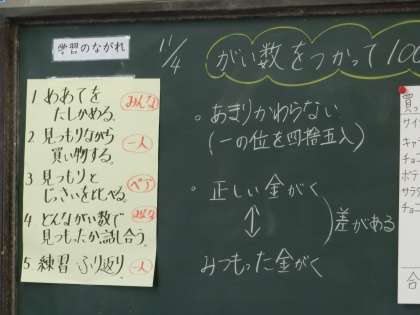 学習のながれ
11/4
がい数をつかって100
1 めあてを
たしかめる。
みんな
2 見つもりながら
買い物する。
一人
3 見つもりと
じっさいを比べる。
ペア
4 どんながい数で
見つもったか、話し合う。
みんな
5 練習 ふり返り
一人
。あまりかわらない
(一の位を四捨五入)
。正しい金がく
↕
みつもった金がく
差がある
買っ
サイ
キャ
チョ
ポテ
サラダ
チョー
合